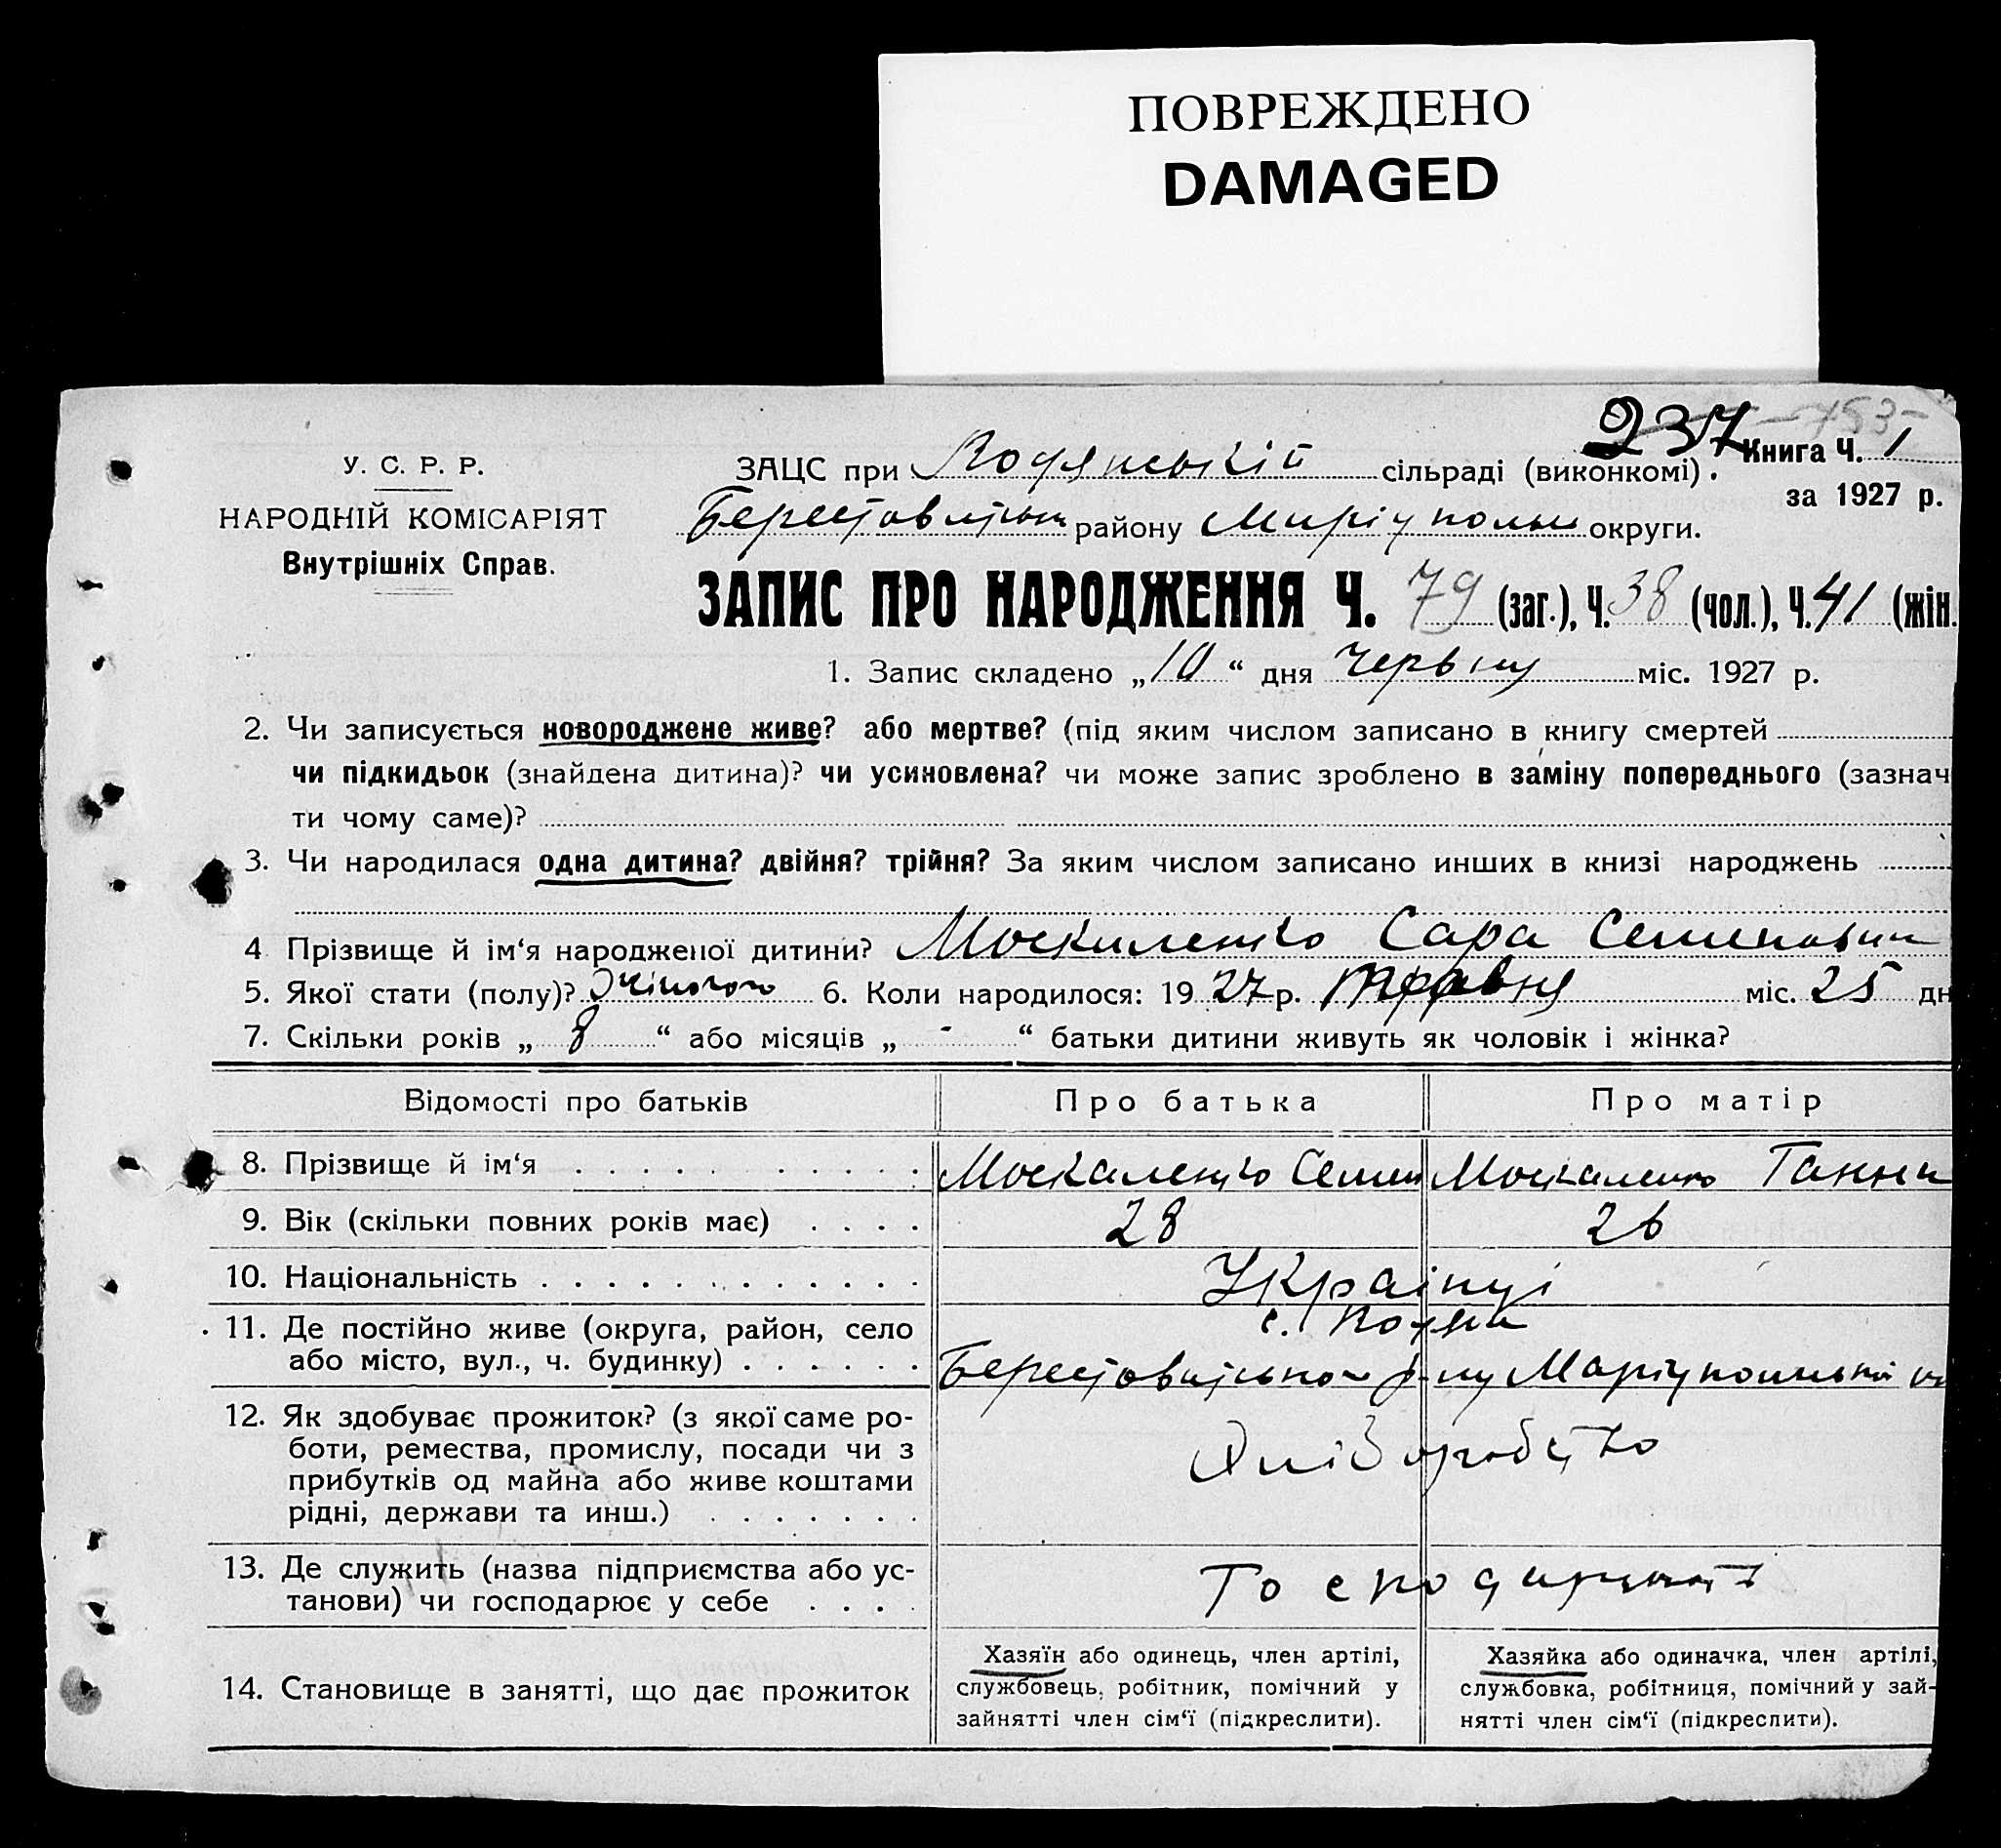 ПОВРЕЖДЕНО
DAMAGED
237 -753-
Книга Ч. 1
за 1927 р.
У. С. Р. Р.
НАРОДНІЙ КОМІСАРІЯТ
Внутрішніх Справ.
ЗАЦС при Водянській сільраді (виконкомі).
району Маріупольк округи.
ЗАПИС ПРО НАРОДЖЕННЯ Ч. 79 (заг.), Ч. 38 (чол.), Ч. 41 (жін.
1. Запис складено „10“ дня Червня міс. 1927 р.
2. Чи записується новороджене живе? або мертве? (під яким числом записано в книгу смертей
чи підкидьок (знайдена дитина)? чи усиновлена? чи може запис зроблено в заміну попереднього (зазнач
ти чому саме)?
3. Чи народилася одна дитина? двійня? трійня? За яким числом записано инших в книзі народжень
4 Прізвище й ім‘я народженої дитини? Москаленко Сара
5. Якої стати (полу)? Жіночого 6. Коли народилося: 1927 р. Травня міс. 25 дн
7. Скільки років „ 8 “ або місяців „ - “ батьки дитини живуть як чоловік і жінка?
Відомості про батьків Про батька Про матір
8. Прізвище й ім‘я Москаленко Семен Москаленко Ганна
9. Вік (скільки повних років має) 28 26
10. Національність Українці
11. Де постійно живе (округа, район, село с. Водяна
або місто, вул., ч. будинку) р-ну Маріупольської
12. Як здобуває прожиток? (з якої саме ро-
боти, ремества, промислу, посади чи з Хліборобство
прибутків од майна або живе коштами
рідні, держави та инш.)
13. Де служить (назва підприємства або ус-
танови) чи господарює у себе
14. Становище в занятті, що дає прожиток
Хазяїн або одинець, член артілі,
службовець, робітник, помічний у
зайнятті член сім‘ї (підкреслити).
Хазяйка або одиначка, член артілі,
службовка, робітниця, помічний у зай-
нятті член сім‘ї (підкреслити).